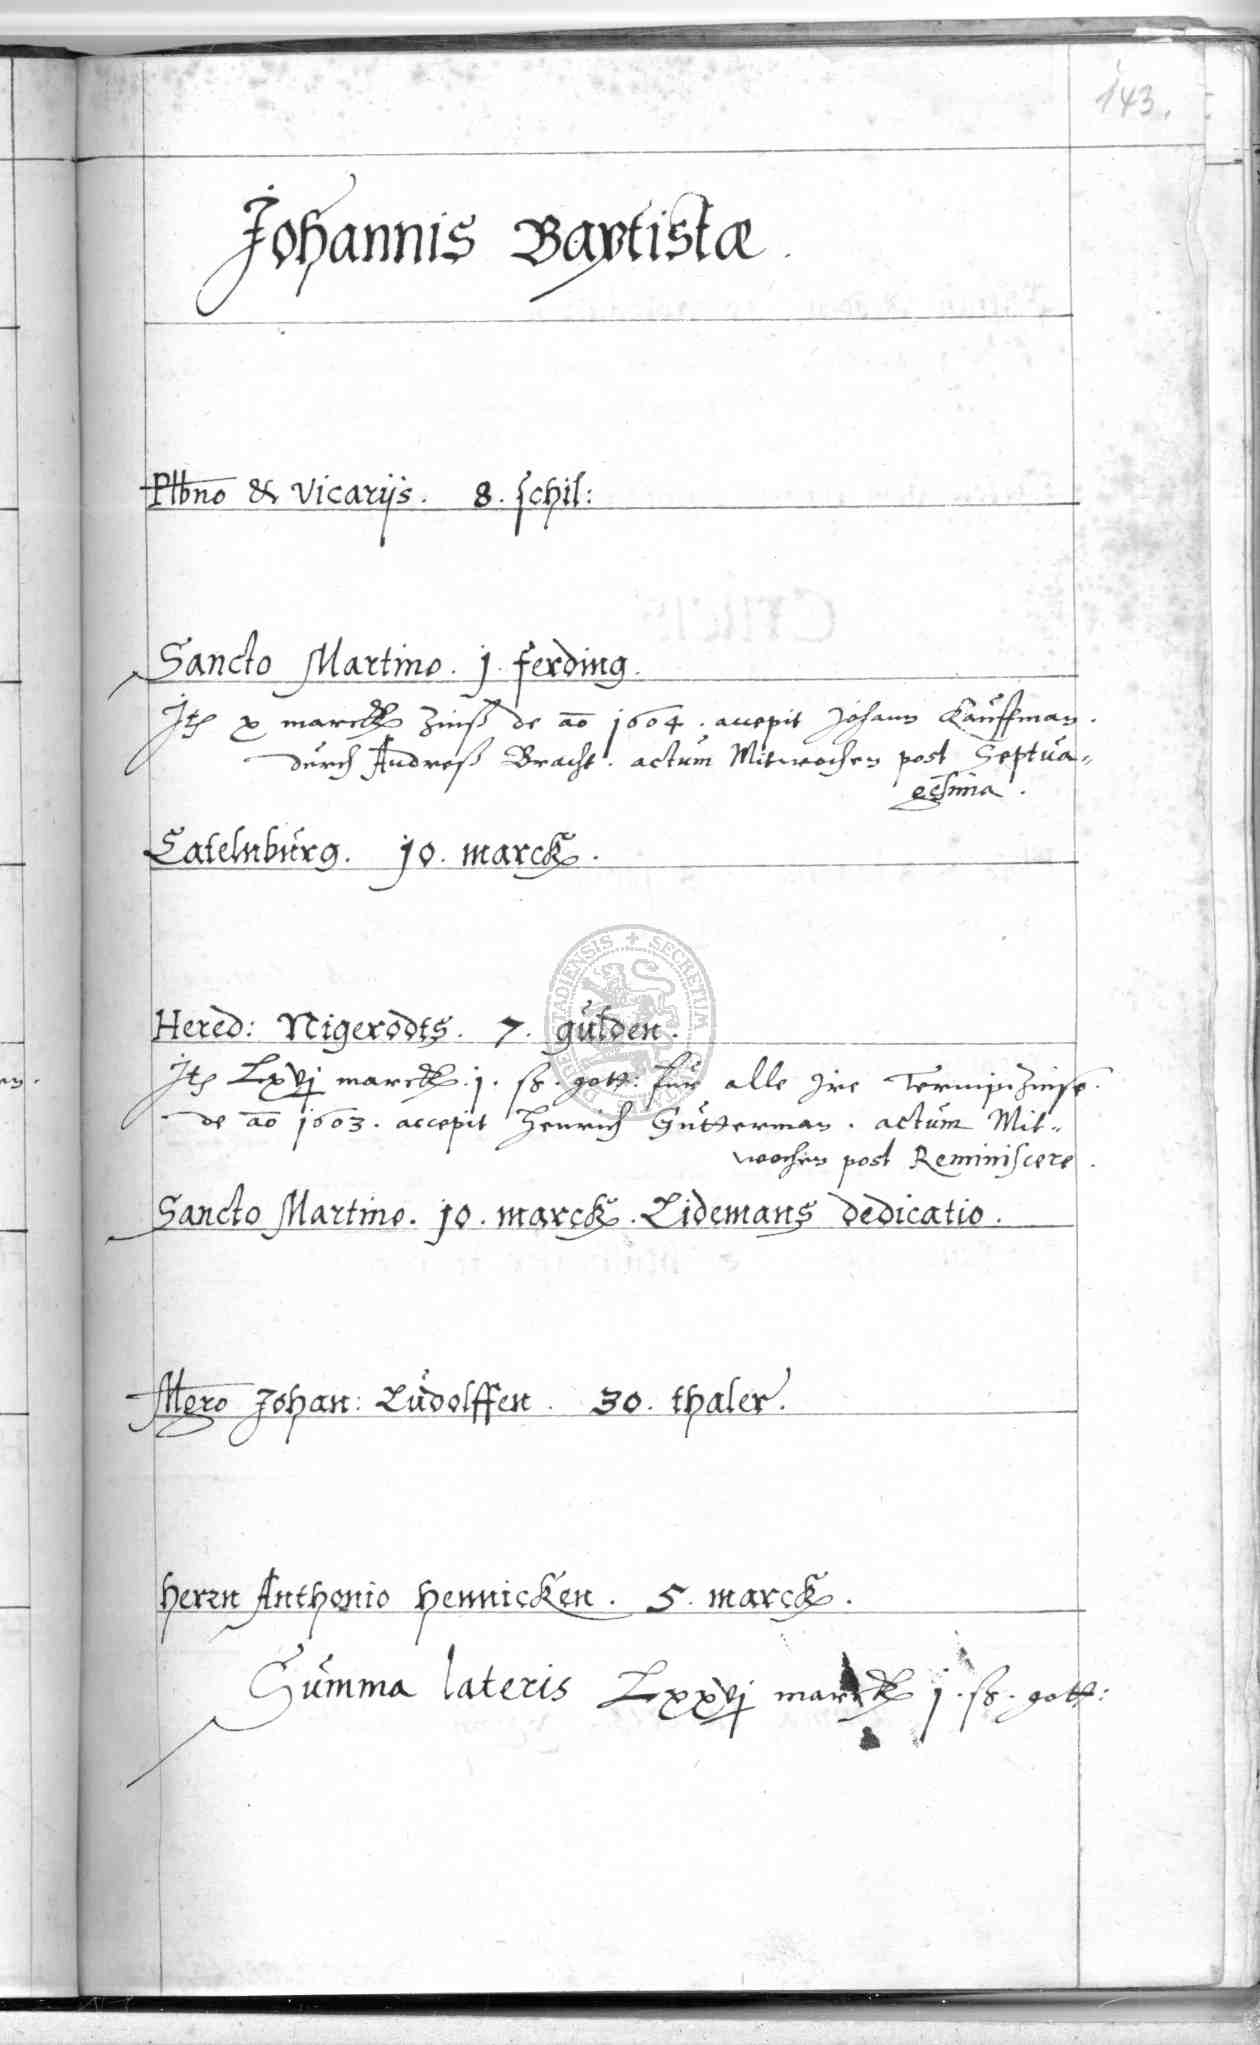 143.
Johannis Baptistæ.
Plbno & Vicarijs. 8. schil:
Sancto Martino. j. ferding.
Jtē x marck zinß de ao 1604. accepit Johann Kauffman.
durch Andreß Bracht. actum Mitwochen post Septua-
gesima.
Catelnburg. 10. marck.
Hered: Nigerodts. 7. gulden.
Jtē Lxvj marck. j. ß. gott: für alle Jre Terminzinse.
de ao 1603. accepit Henrich Gutterman. actum Mit-
wochen post Reminiscere.
Sancto Martino. 10. marck. Lidemans dedicatio.
Mgro Johan: Ludolffen. 30. thaler.
Herrn Anthonio Hennicken. 5. marck.
Summa lateris Lxxvj marck j. ß. gott:
SECRETUM